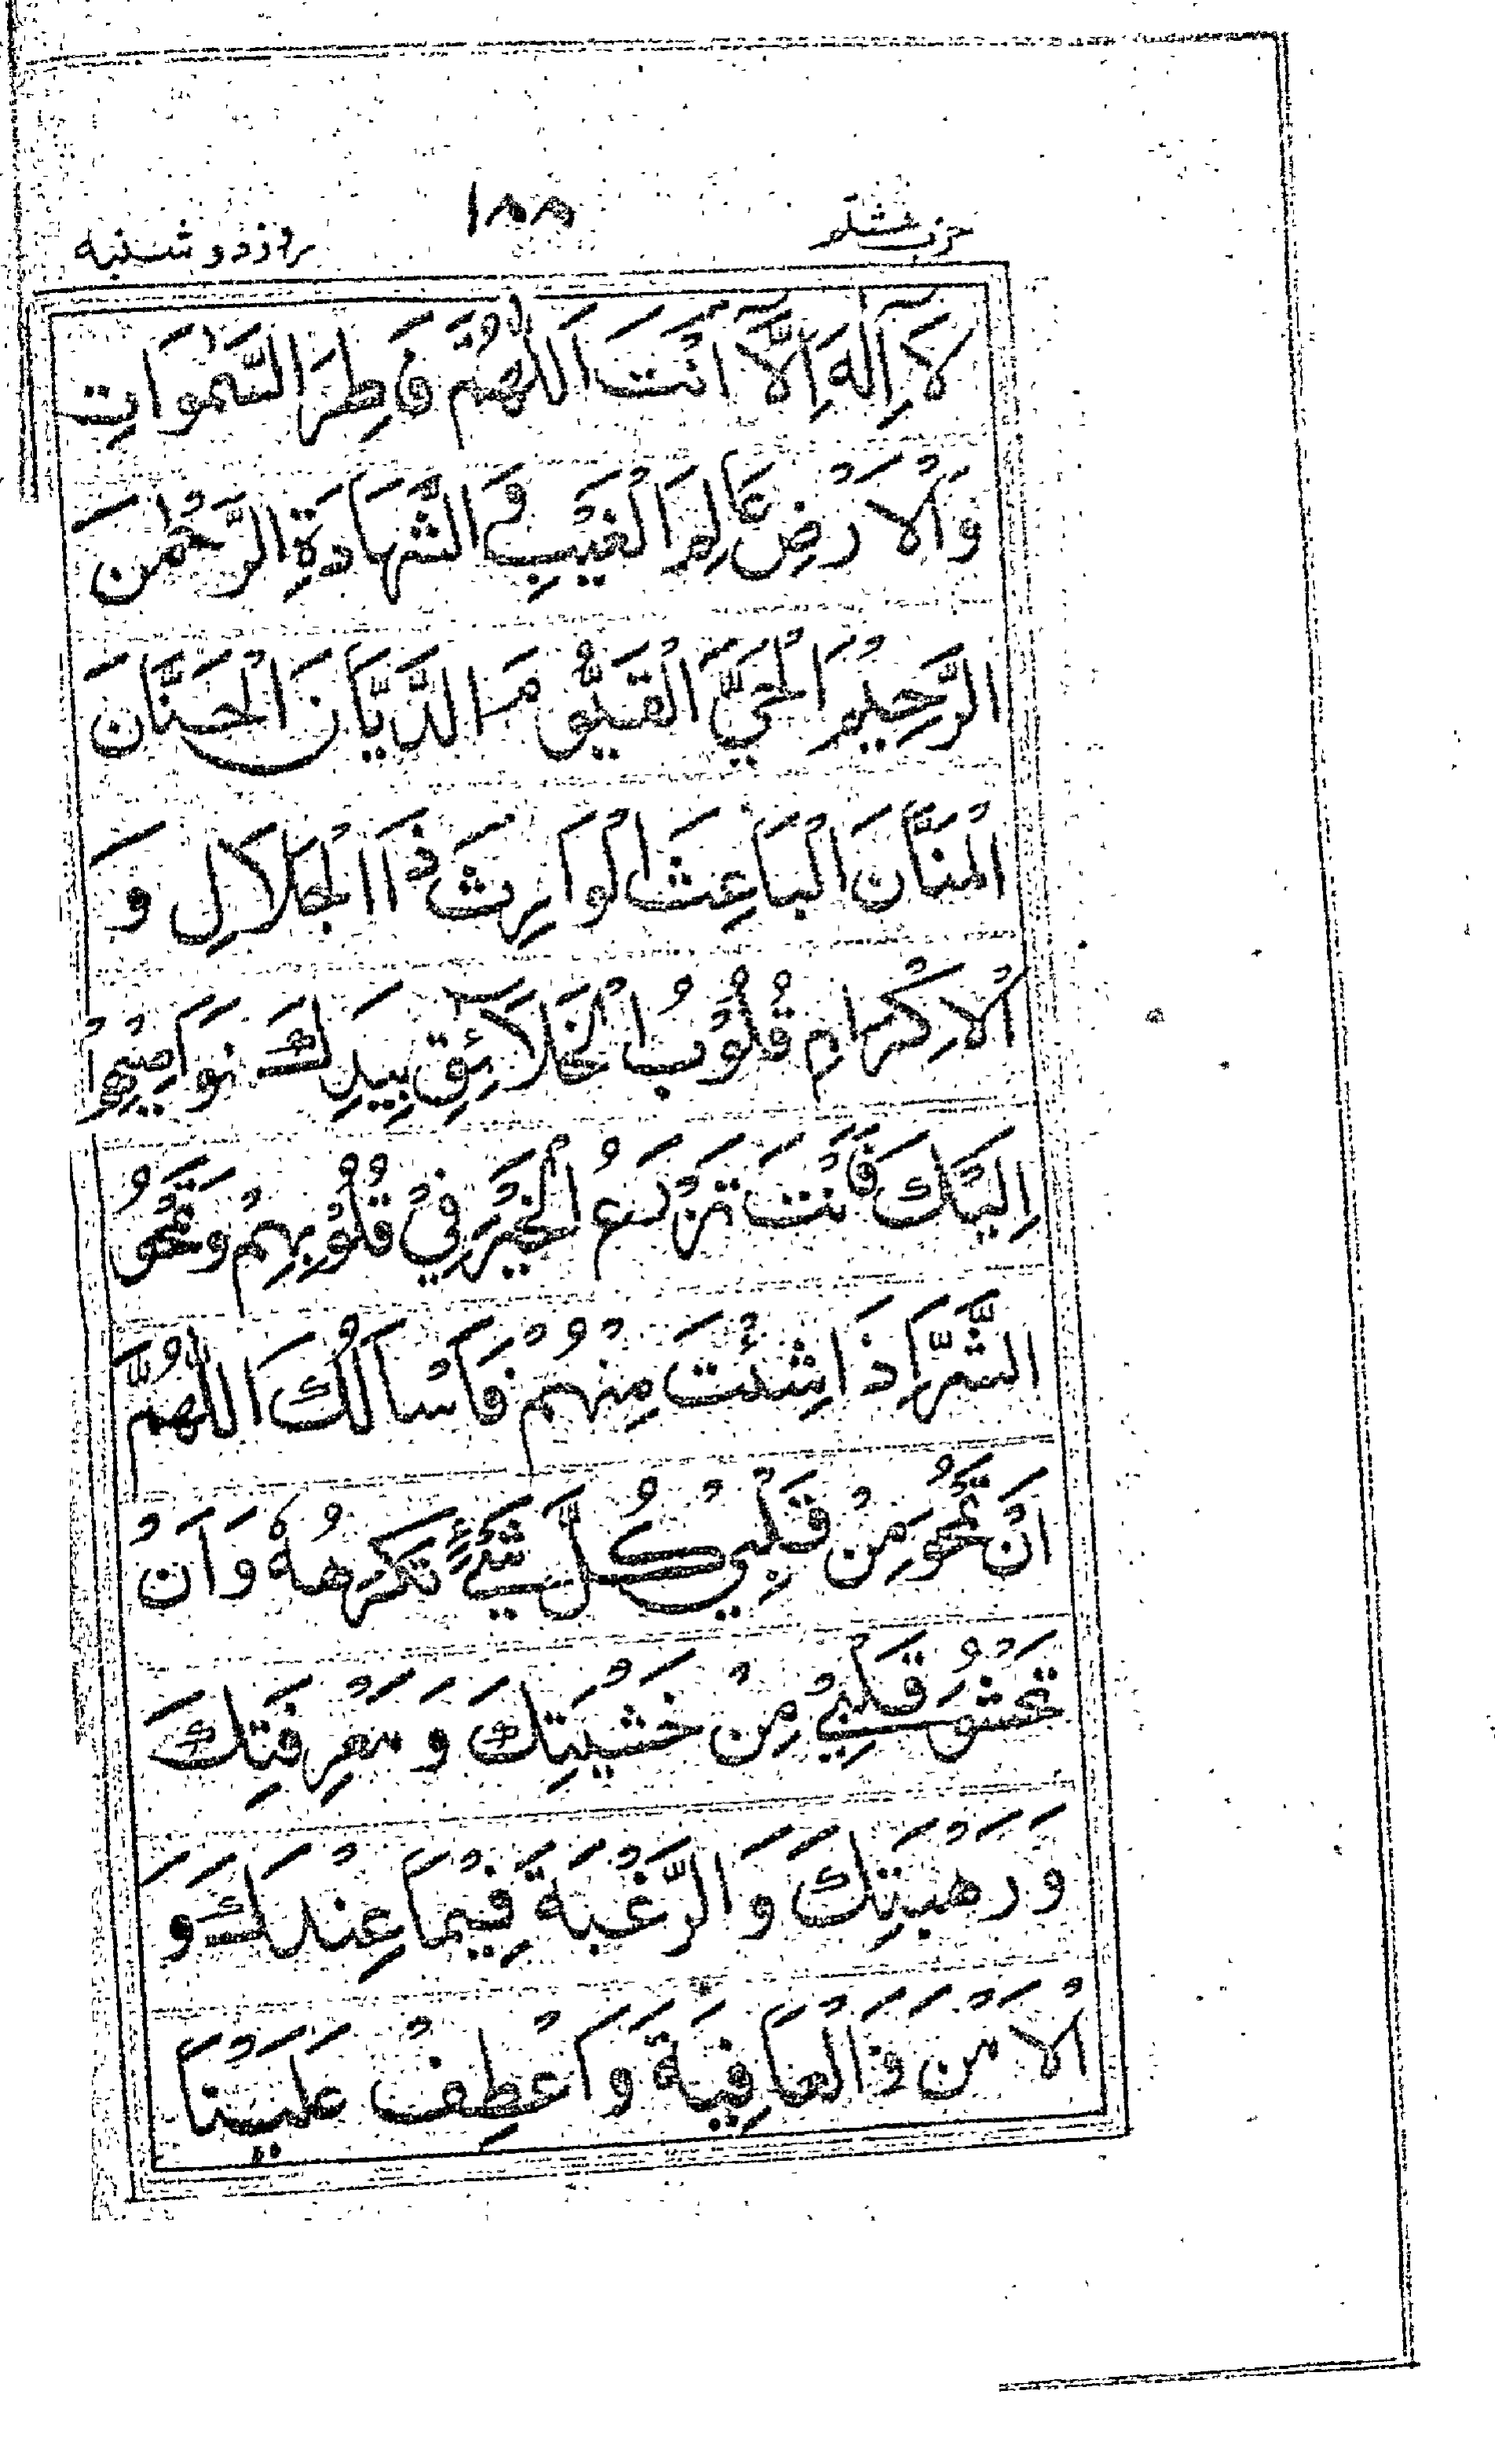 حزب هشتم ١٨٨ روز دو شنبه
لَآ اِلٰهَ اِلَّآ اَنْتَ اَللّٰهُمَّ فَاطِرَ السَّمٰوَاتِ
وَالْاَرْضِ عَالِمَ الْغَيْبِ وَ الشَّهَادَةِ الرَّحْمٰنَ
الرَّحِيْمَ الْحَيَّ الْقَيُّوْمَ الدَّيَّانَ الْحَنَّانَ
الْمَنَّانَ الْبَاعِثَ الْوَارِثَ ذَا الْجَلَالِ وَ
الْاِكْرَامِ قُلُوْبُ الْخَلَآئِقِ بِيَدِكَ نَوَاصِيْهَا
اِلَيْكَ فَاَنْتَ تَزْرَعُ الْخَيْرَ فِيْ قُلُوْبِهِمْ وَتَمْحُو
الشَّرَّ اِذَا شِئْتَ مِنْهُمْ فَاَسْاَلُكَ اللّٰهُمَّ
اَنْ تَمْحُوَ مِنْ قَلْبِيْ كُلَّ شَيْءٍ تَكْرَهُهٗ وَاَنْ
تَحْشُوَ قَلْبِيْ مِنْ خَشْيَتِكَ وَمَعْرِفَتِكَ
وَرَهْبَتِكَ وَالرَّغْبَةَ فِيْمَا عِنْدَكَ وَ
الْاَمْنَ وَالْعَافِيَةَ وَاعْطِفْ عَلَيْنَا